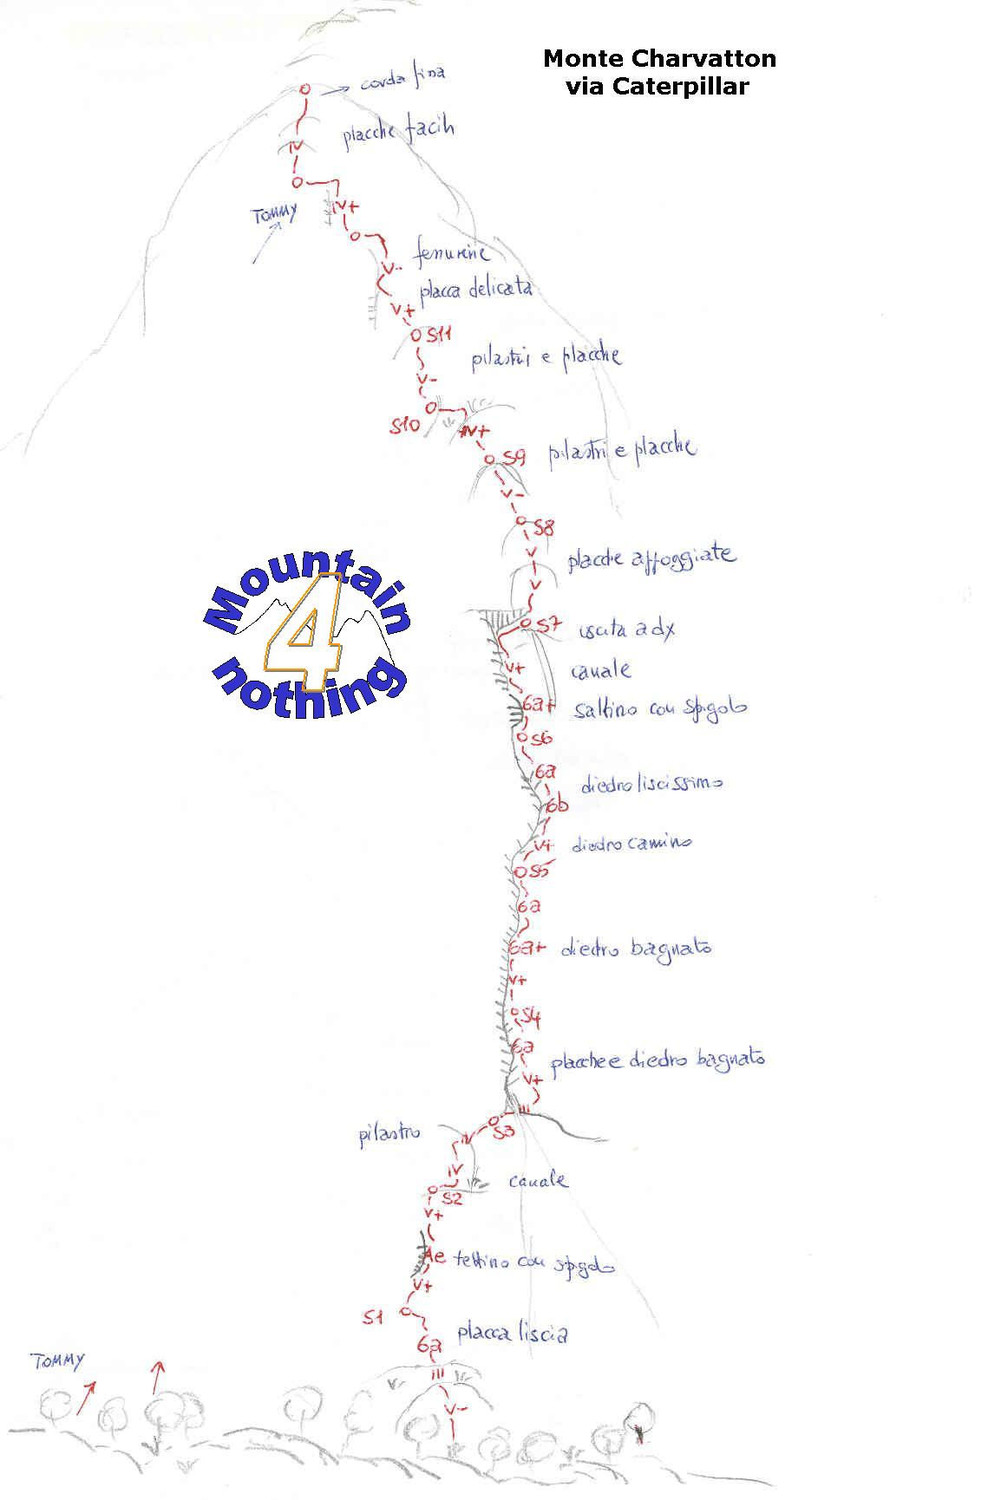 Monte Charvatton
via Caterpillar
corda fina
placche facili
IV
TOMMY
IV+
femurine
V-
placca delicata
V+
S11
pilastri e placche
V-
S10
IV+
S9
pilastri e placche
V-
S8
V
placche appoggiate
V
S7
uscita a dx
V+
canale
6a+
saltino con spigolo
S6
6a
diedro liscissimo
6b
V+
diedro camino
S5
6a
6a+
diedro bagnato
V+
S4
6a
placche e diedro bagnato
V+
III
S3
pilastro
IV
IV
canale
S2
V+
Ae
tettino con spigolo
V+
S1
placca liscia
6a
TOMMY
III
V-
Mountain
4
nothing